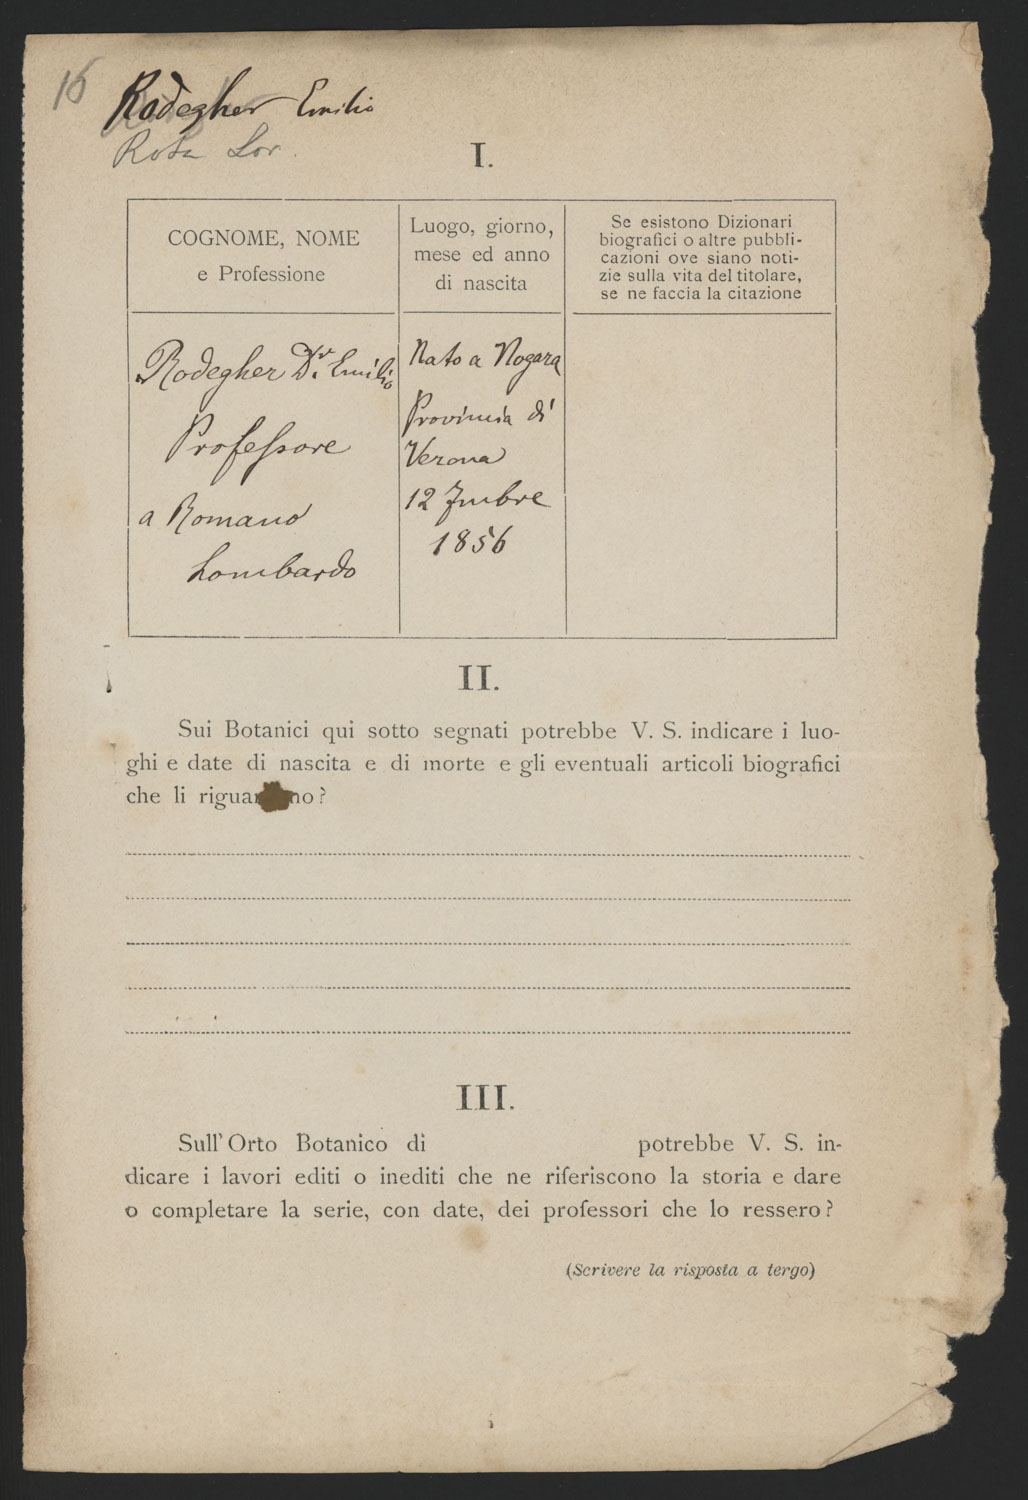 16
Rodegher Emilio
Rota Lor.
I.
COGNOME, NOME
e Professione
Luogo, giorno,
mese ed anno
di nascita
Se esistono Dizionari
biografici o altre pubbli-
cazioni ove siano noti-
zie sulla vita del titolare,
se ne faccia la citazione
Rodegher Dr. Emilio
Professore
a Romano
Lombardo
Nato a Nogara
Provincia di
Verona
12 7mbre
1856
II.
Sui Botanici qui sotto segnati potrebbe V. S. indicare i luo-
ghi e date di nascita e di morte e gli eventuali articoli biografici
che li
III.
Sull'Orto Botanico di potrebbe V. S. in-
dicare i lavori editi o inediti che ne riferiscono la storia e dare
o completare la serie, con date, dei professori che lo ressero?
(Scrivere la risposta a tergo)